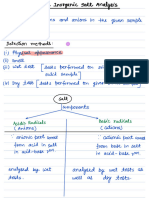 Inorganic Salt Analysis
ons and anions in the given sample
Detection methods
(i) Physical appearance
(ii) Smell
(iii) Wet test tests performed on
salt sample
(iv) Dry test tests performed on given
Salt
components
Acidic Radicals
(anions)
Basic Radicals
(cations)
anionic part
from acid in salt
in acid-base rxn
cationic part
from base in salt
in acid-base rxn
analysed by wet
tests.
analysed by wet tests as
well as dry tests.